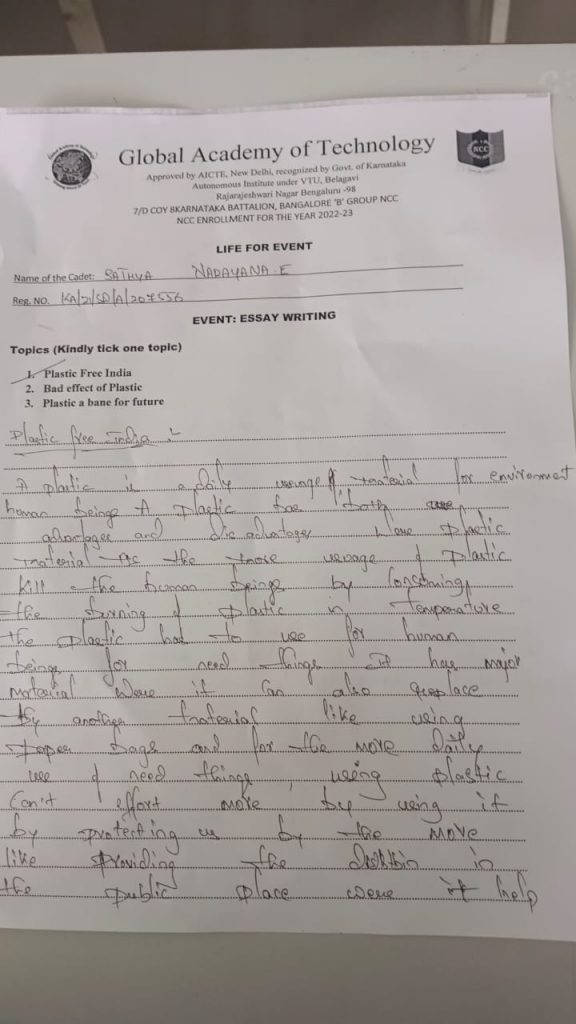 Global Academy of Technology
Approved by AICTE, New Delhi, recognized by Govt. of Karnataka
Autonomous Institute under VTU, Belagavi
Rajarajeshwari Nagar Bengaluru -98
7/D COY 8KARNATAKA BATTALION, BANGALORE 'B' GROUP NCC
NCC ENROLLMENT FOR THE YEAR 2022-23
NCC
LIFE FOR EVENT
Name of the Cadet: SATHYA NARAYANA.E
Reg. NO. KA/21/SD/A/207556
EVENT: ESSAY WRITING
Topics (Kindly tick one topic)
1. Plastic Free India
2. Bad effect of Plastic
3. Plastic a bane for future
Plastic free India :-
A plastic is a daily usage of material for environment
human beings A plastic has both
advantages and disadvantages were plastic
material the more useage of plastic
kill the human beings by consuming
the burning of plastic in Temperature
the plastic had to use for human
beings for need things it has major
material were it can also replace
by another material like using
paper bags and for the more daily
use of need things, using plastic
can't effort more by using it
by protecting us by the more
like providing the dustbin in
the public place were it help